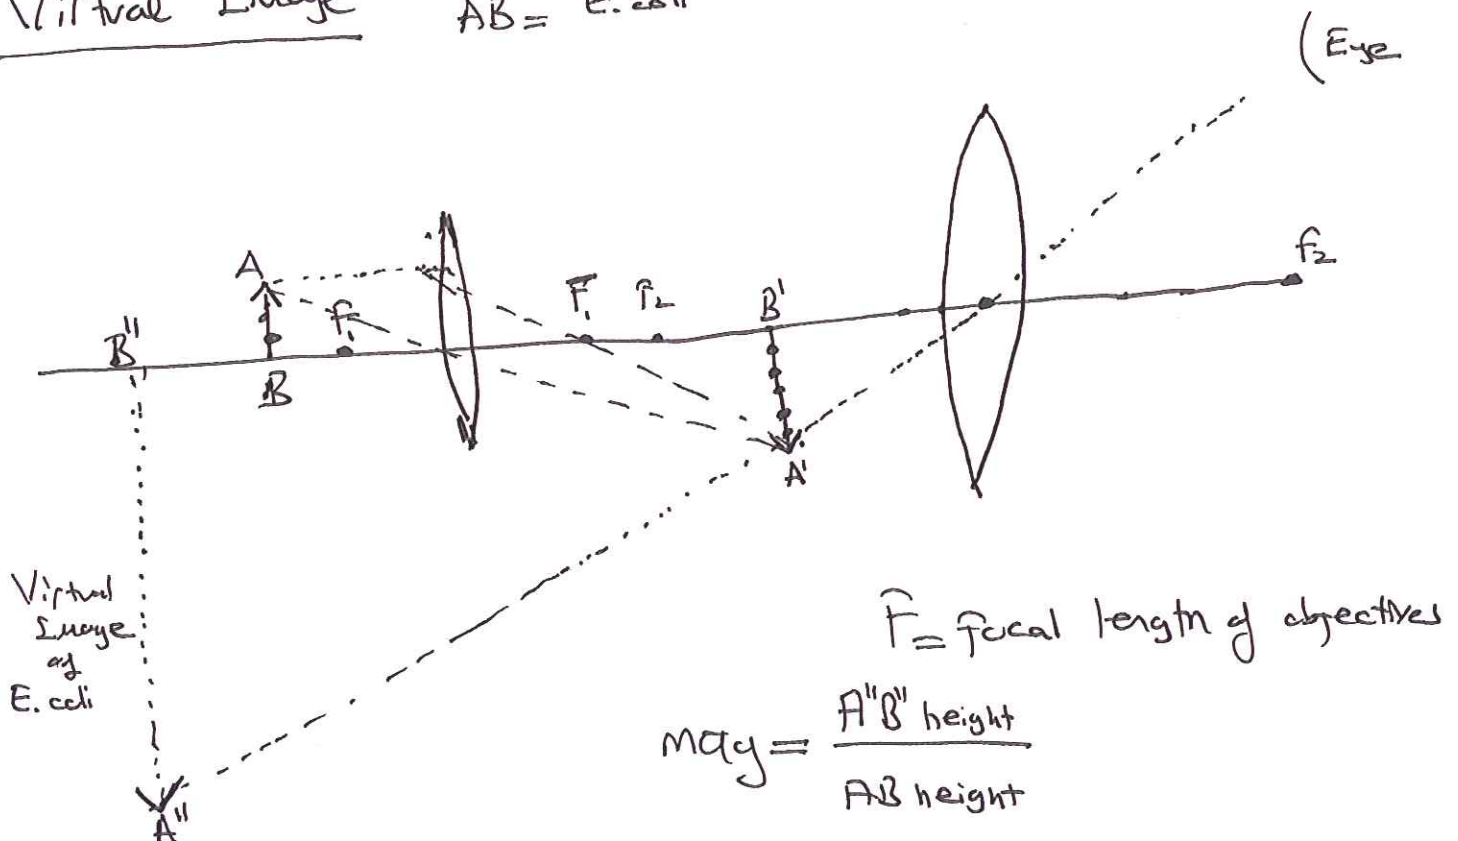 Virtual Image AB = E. coli
(Eye
A
F₁
F₁
F₂
B'
F₂
B"
B
A'
Virtual
Image
of
E. coli
F = focal length of objectives
mag = A"B" height
AB height
A"